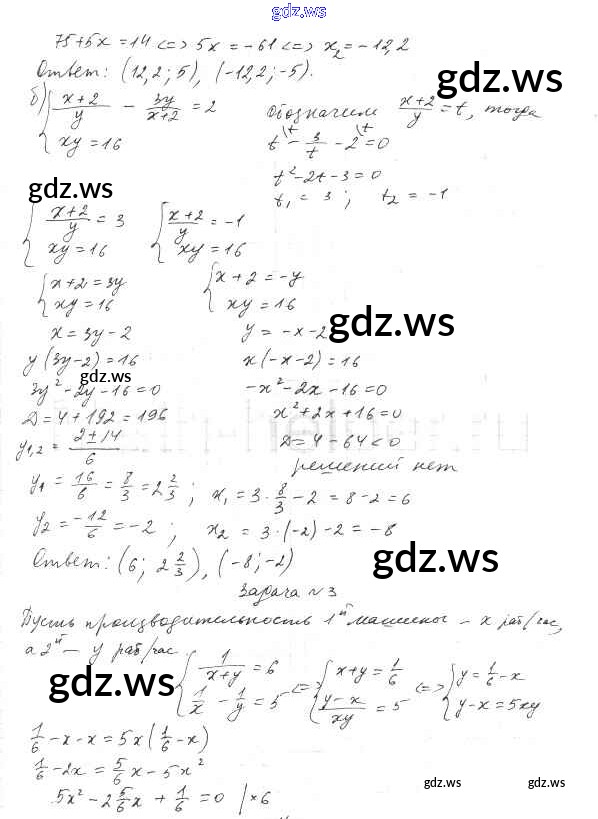 gdz.ws
75+5x=14 <=> 5x=-61 <=> x₂=-12,2
Ответ: (12,2; 5), (-12,2; -5).
gdz.ws
б) { (x+2)/y - 3y/(x+2) = 2
xy=16
Обозначим (x+2)/y = t, тогда
t\t - 3/t - 2\t = 0
t²-2t-3=0
t₁=3; t₂=-1
gdz.ws
{ (x+2)/y = 3
xy=16
{ (x+2)/y = -1
xy=16
{ x+2=3y
xy=16
{ x+2=-y
xy=16
x=3y-2
y(3y-2)=16
gdz.ws
3y²-2y-16=0
D=4+192=196
y₁,₂ = (2±14)/6
y=-x-2
gdz.ws
x(-x-2)=16
-x²-2x-16=0
x²+2x+16=0
D=4-64<0
решений нет
y₁ = 16/6 = 8/3 = 2 2/3; x₁ = 3·8/3 - 2 = 8-2 = 6
y₂ = -12/6 = -2; x₂ = 3·(-2)-2 = -8
Ответ: (6; 2 2/3), (-8; -2)
gdz.ws
Задача №3
Пусть производительность 1й машины - x раб/час,
а 2й - y раб/час
gdz.ws
{ 1/(x+y) = 6
1/x - 1/y = 5 <=> { x+y = 1/6
(y-x)/xy = 5 <=> { y = 1/6 - x
y-x = 5xy
1/6 - x - x = 5x(1/6 - x)
1/6 - 2x = 5/6x - 5x²
5x² - 2 5/6x + 1/6 = 0 | ×6
gdz.ws
gdz.ws